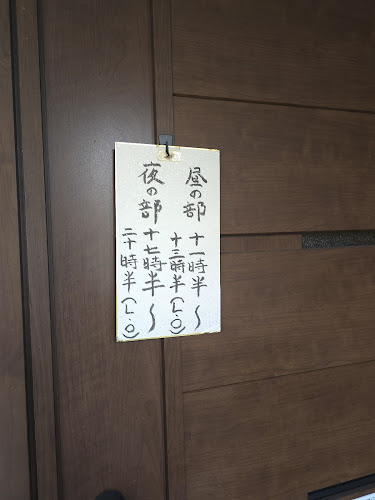 昼の部 十一時半〜
十三時半(L.O)
夜の部 十七時半〜
二十時半(L.O)